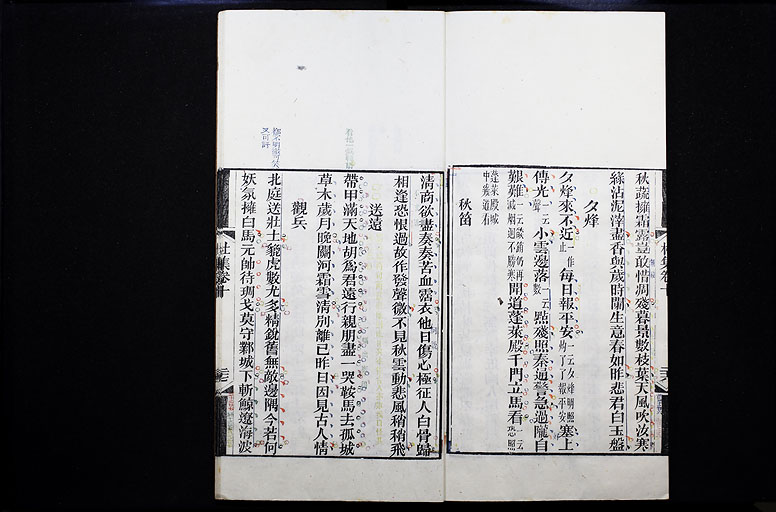 秋蔬擁霜露豈敢惜凋殘暮景數枝葉天風吹汝寒
綠沾泥滓盡香與歲時闌生意春如昨悲君白玉盤
夕烽
夕烽來不近一作止每日報平安
塞上
傳光一云聲小雲邊落一云數點殘照秦通警急過隴自
艱難聞道蓬萊殿千門立馬看
秋笛
清商欲盡奏奏苦血霑衣他日傷心極征人白骨歸
相逢恐恨過故作發聲微不見秋雲動悲風稍稍飛
送遠
帶甲滿天地胡為君遠行親朋盡一哭鞍馬去孤城
草木歲月晚關河霜雪清別離已昨日因見古人情
觀兵
北庭送壯士貔虎數尤多精銳舊無敵邊隅今若何
妖氛擁白馬元帥待琱戈莫守鄴城下斬鯨遼海波
杜集卷十